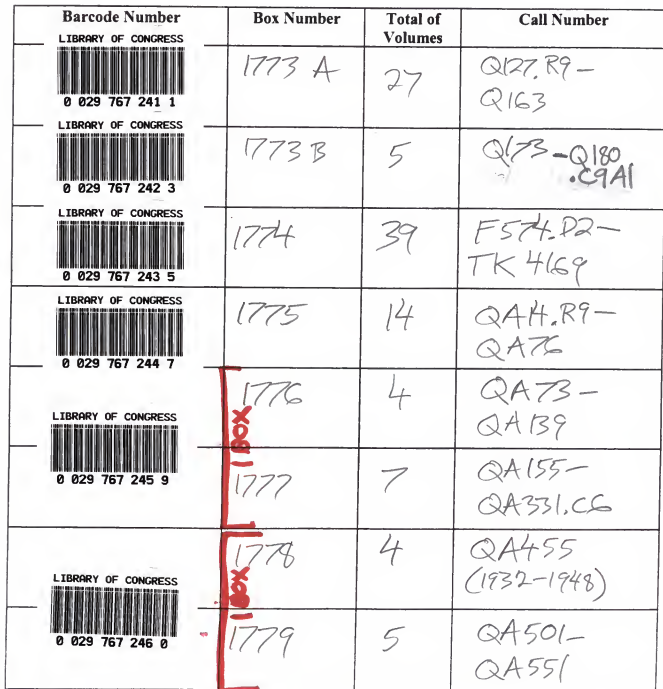 Barcode Number Box Number Total of Volumes Call Number
LIBRARY OF CONGRESS
0 029 767 241 1
1773 A 27 Q127.R9-
Q163
LIBRARY OF CONGRESS
0 029 767 242 3
1773 B 5 Q173-Q180
.C9A1
LIBRARY OF CONGRESS
0 029 767 243 5
1774 39 F574.D2-
TK 4169
LIBRARY OF CONGRESS
0 029 767 244 7
1775 14 R9-
QA76
LIBRARY OF CONGRESS
0 029 767 245 9
1 BOX
1776 4 QA73-
QA139
1777 7 QA155-
QA331.C6
LIBRARY OF CONGRESS
0 029 767 246 0
1 BOX
1778 4 QA455
(1932-1948)
1779 5 QA501-
QA551